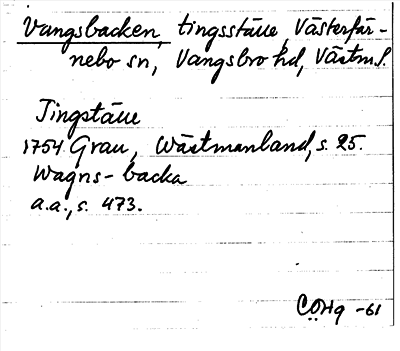 Vangsbacken, tingsställe, Västerfär-
nebo sn, Vangsbro hd, Västml.
Tingställe
1754 Grau, Wästmanland, s. 25.
Wagns-backa
a.a., s. 473.
CÖHg -61